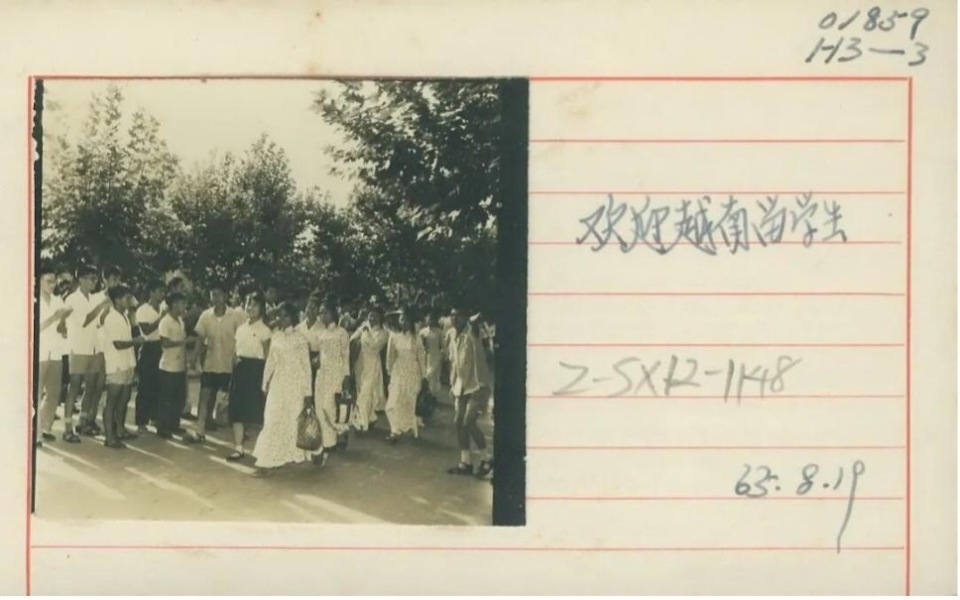 01859
H3-3
欢迎越南留学生
2-SX12-1148
65.8.19